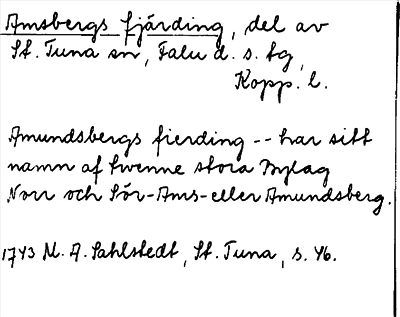 Amsbergs fjärding, del av
St. Tuna sn, Falu d. s. tg,
Kopp. l.
Amundsbergs fierding -- har sitt
namn af twenne stora Bylag
Norr och Sör-Ams- eller Amundsberg.
1743 M. A. Sahlstedt, St. Tuna, s. 46.